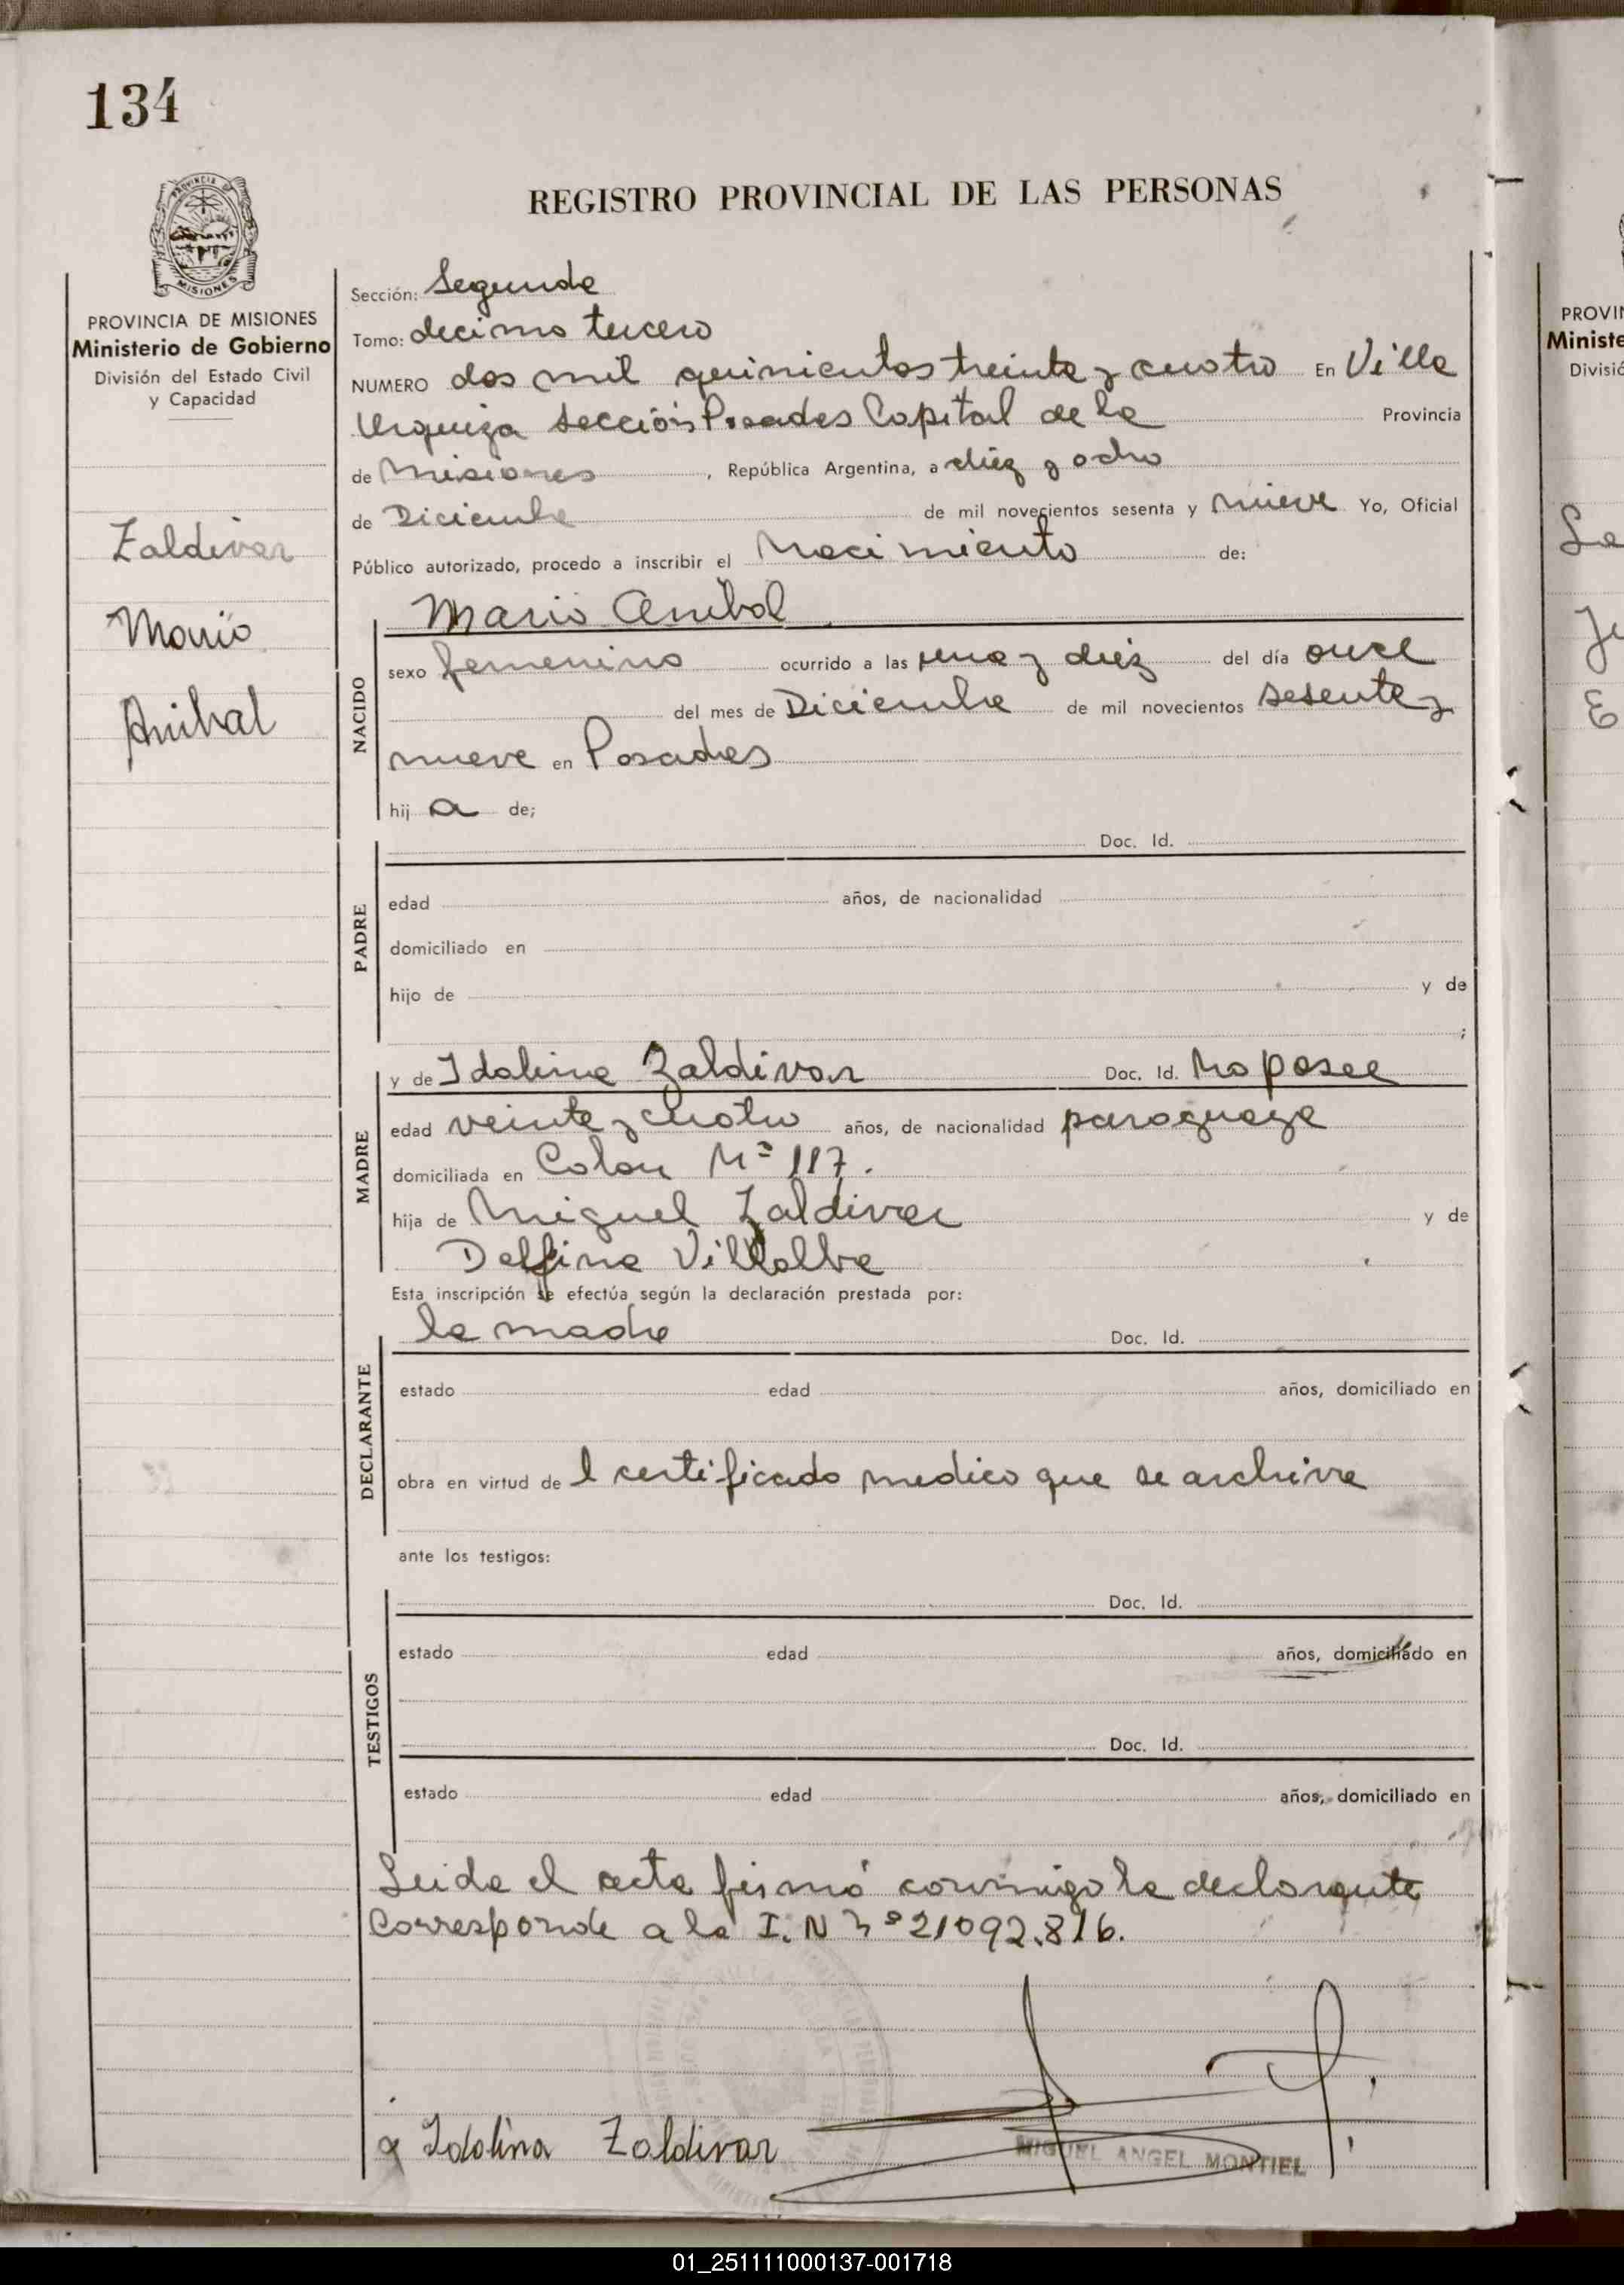 134
REGISTRO PROVINCIAL DE LAS PERSONAS
PROVINCIA DE MISIONES
Ministerio de Gobierno
División del Estado Civil
y Capacidad
Zaldivar
Mario
Anibal
Sección: Segunda
Tomo: decimo tercero
NUMERO dos mil quinientos treinta y cuatro En Villa
Urquiza sección Posadas Capital de la Provincia
de Misiones, República Argentina, a diez y ocho
de Diciembre de mil novecientos sesenta y nueve Yo, Oficial
Público autorizado, procedo a inscribir el Nacimiento de:
NACIDO
Mario Anibal
sexo femenino ocurrido a las una y diez del día once
del mes de Diciembre de mil novecientos sesenta y
nueve en Posadas
hij a de;
PADRE
Doc. Id.
edad años, de nacionalidad
domiciliado en
hijo de y de
;
MADRE
y de Idalina Zaldivar Doc. Id. No posee
edad veinte y cuatro años, de nacionalidad paraguaya
domiciliada en Colon Nº 117.
hija de Miguel Zaldivar y de
Delfina Villalba
Esta inscripción se efectúa según la declaración prestada por:
DECLARANTE
la madre Doc. Id.
estado edad años, domiciliado en
obra en virtud de l certificado medico que se archiva
ante los testigos:
TESTIGOS
Doc. Id.
estado edad años, domiciliado en
Doc. Id.
estado edad años, domiciliado en
Leida el acta firmó conmigo la declarante
Corresponde a la I. N nº 21092.816.
Idolina Zoldivar
MIGUEL ANGEL MONTIEL
PROVIN
Ministe
Divisió
01_251111000137-001718